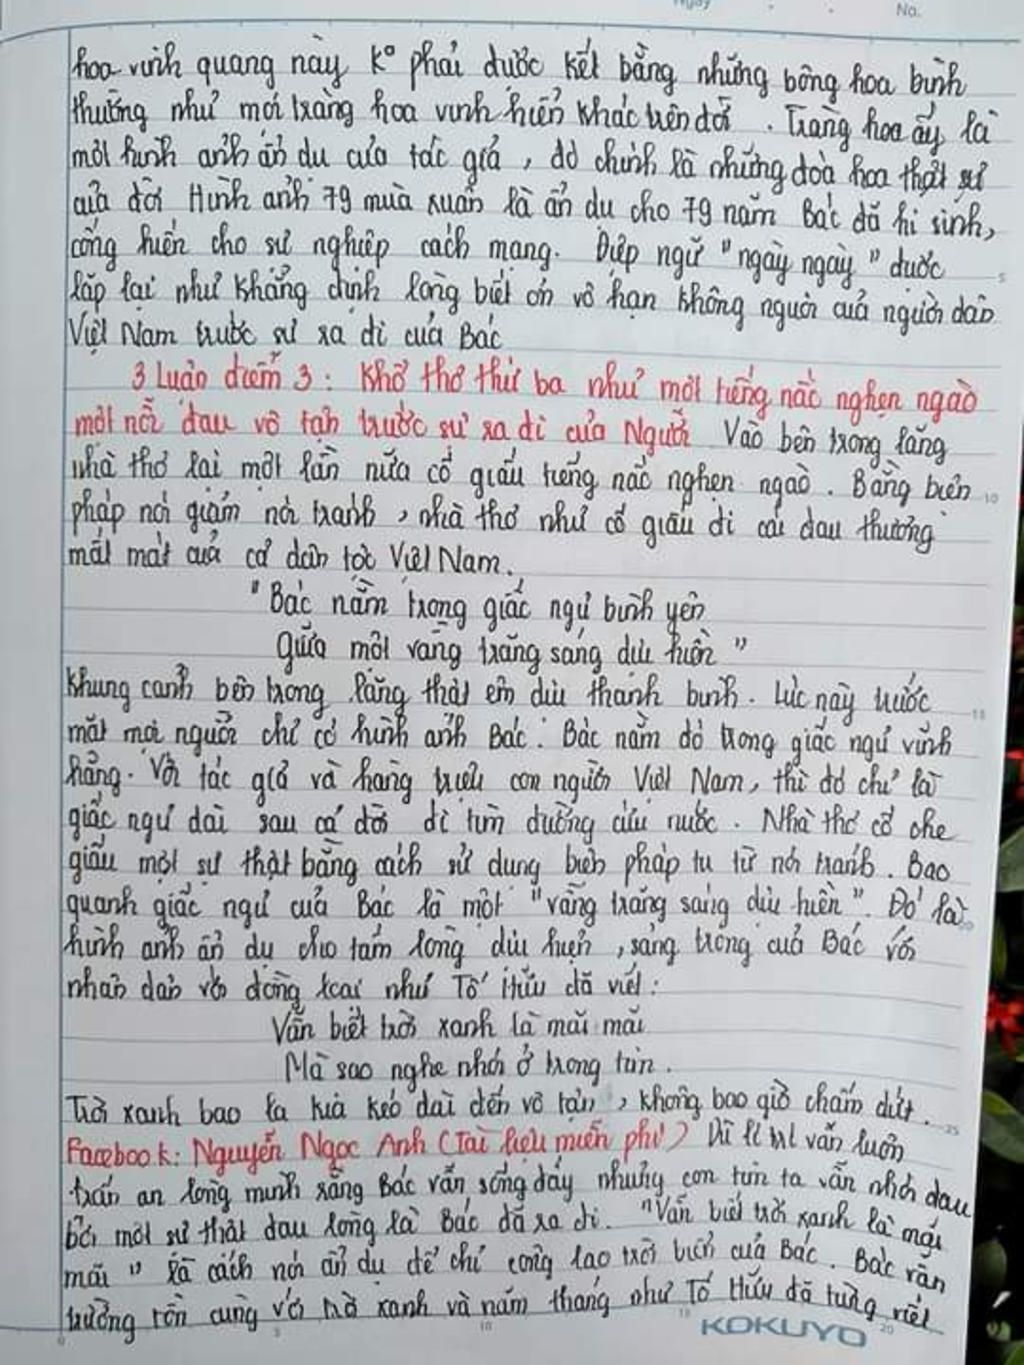 Ngày No.
hoa vinh quang này Kº phải được kết bằng những bông hoa bình
thường như mọi tràng hoa vinh hiển khác trên đời. Tràng hoa ấy là
một hình ảnh ẩn dụ của tác giả, đó chính là những đoà hoa thật sự
của đời Hình ảnh 79 mùa xuân là ẩn dụ cho 79 năm Bác đã hi sinh,
cống hiến cho sự nghiệp cách mạng. Điệp ngữ "ngày ngày" được
lặp lại như khẳng định lòng biết ơn vô hạn không nguôi của người dân
Việt Nam trước sự ra đi của Bác
3 Luận điểm 3: Khổ thơ thứ ba như một tiếng nấc nghẹn ngào
một nỗi đau vô tận trước sự ra đi của Người Vào bên trong lăng
nhà thơ lại một lần nữa cố giấu tiếng nấc nghẹn ngào. Bằng biện
pháp nói giảm nói tránh, nhà thơ như cố giấu đi cái đau thương
mất mát của cả dân tộc Việt Nam.
"Bác nằm trong giấc ngủ bình yên
Giữa một vầng trăng sáng dịu hiền"
Khung cảnh bên trong lăng thật êm dịu thanh bình. Lúc này trước
mắt mọi người chỉ có hình ảnh Bác. Bác nằm đó trong giấc ngủ vĩnh
hằng. Với tác giả và hàng triệu con người Việt Nam, thì đó chỉ là
giấc ngủ dài sau cả đời đi tìm đường cứu nước. Nhà thơ cố che
giấu một sự thật bằng cách sử dụng biện pháp tu từ nói tránh. Bao
quanh giấc ngủ của Bác là một "vầng trăng sáng dịu hiền". Đó là
hình ảnh ẩn dụ cho tấm lòng dịu hiền, sáng trong của Bác với
nhân dân với đồng loại như Tố Hữu đã viết:
Vẫn biết trời xanh là mãi mãi
Mà sao nghe nhói ở trong tim.
Trời xanh bao la kia kéo dài đến vô tận, không bao giờ chấm dứt.
Facebook: Nguyễn Ngọc Anh (Tài liệu miễn phí) Dù lí trí vẫn luôn
trấn an lòng mình rằng Bác vẫn sống đấy nhưng con tim ta vẫn nhói đau
bởi một sự thật đau lòng là Bác đã ra đi. "Vẫn biết trời xanh là mãi
mãi" là cách nói ẩn dụ để chỉ công lao trời biển của Bác. Bác vẫn
trường tồn cùng với trời xanh và năm tháng như Tố Hữu đã từng viết
KOKUYO